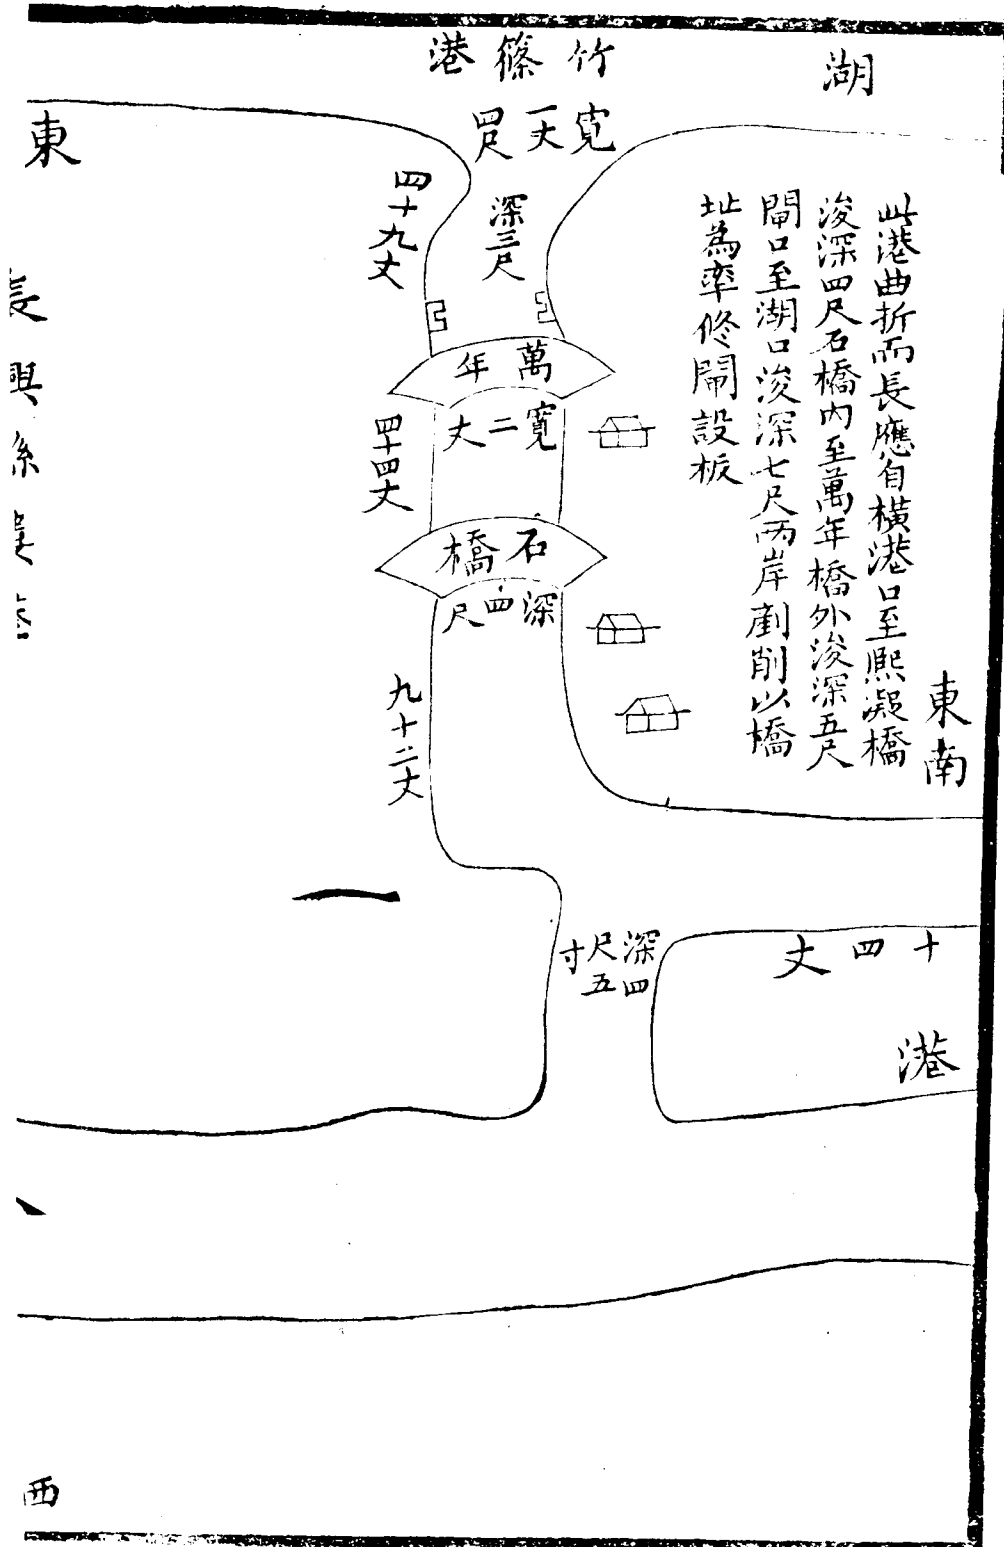 湖
竹篠港
寛一丈四尺
深三尺
四十九丈
東
此港曲折而長應自橫港口至熙凝橋
浚深四尺石橋內至萬年橋外浚深五尺
閘口至湖口浚深七尺兩岸剷削以橋
址為率修閘設板
東南
萬年
寛二丈
四十四丈
石橋
深四尺
九十二丈
深四尺五寸
十四丈
港
西